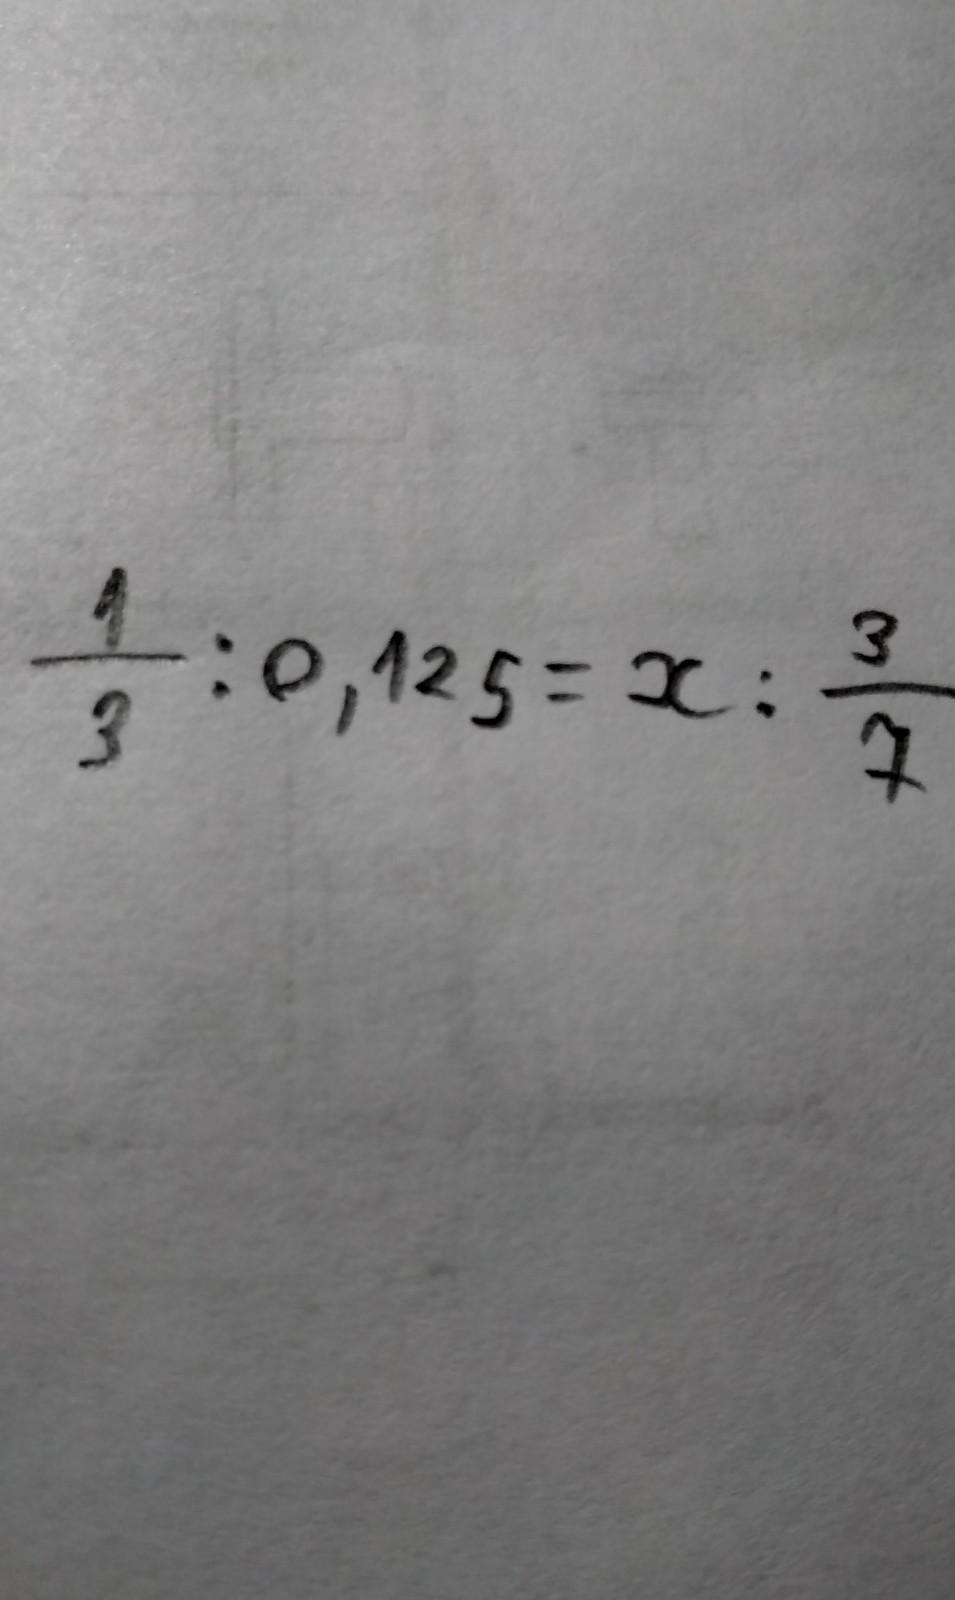 1/3 : 0,125 = x : 3/7